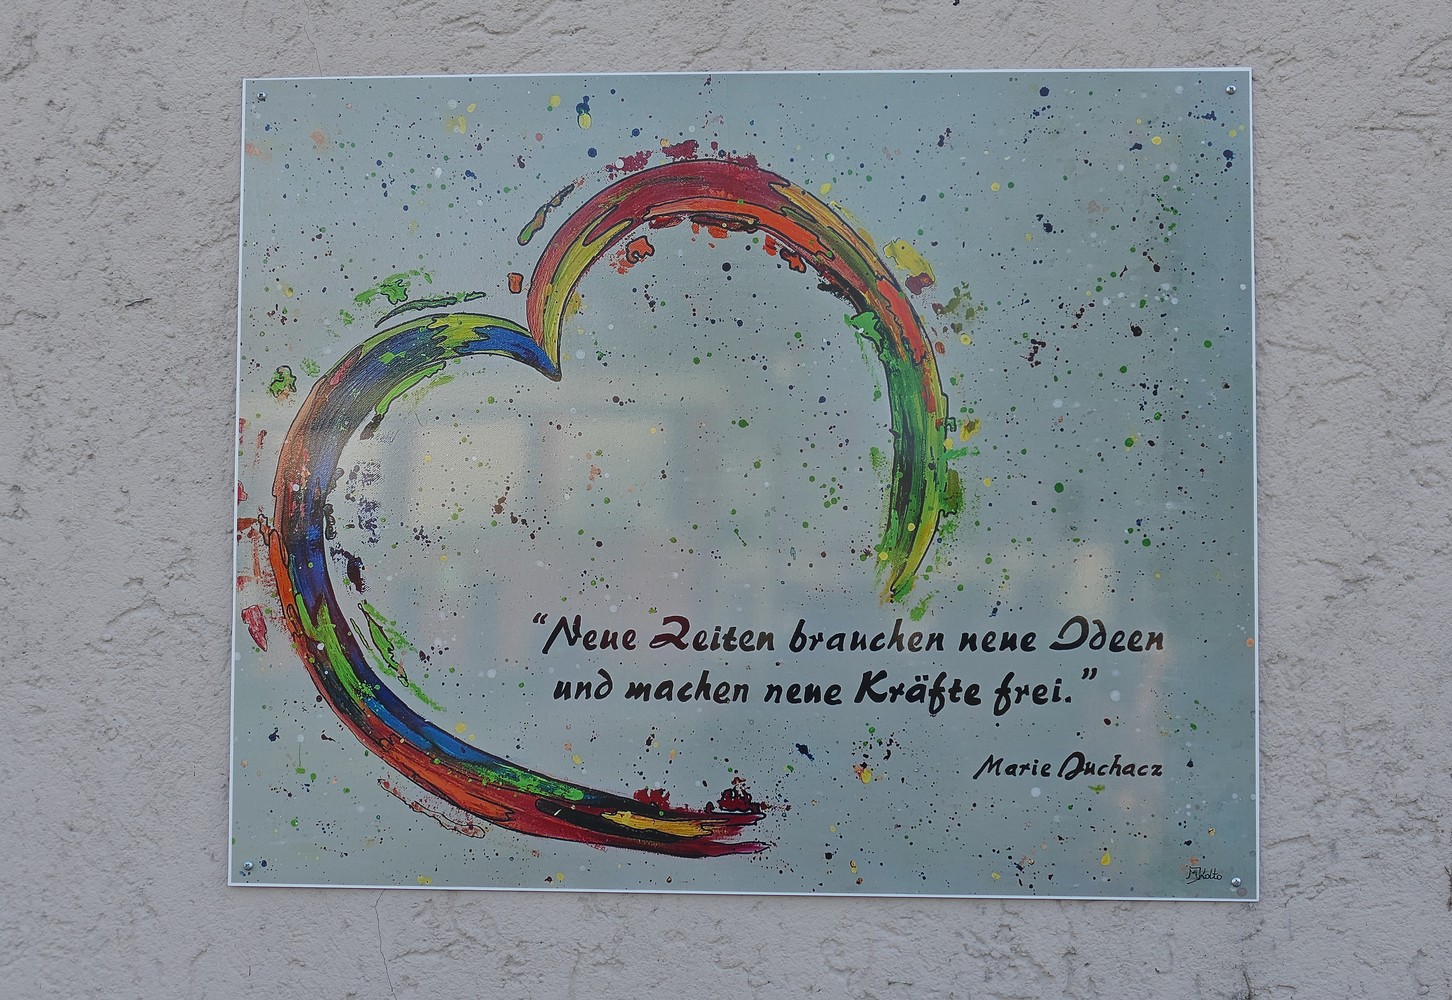 “Neue Zeiten brauchen neue Ideen
und machen neue Kräfte frei.”
Marie Juchacz